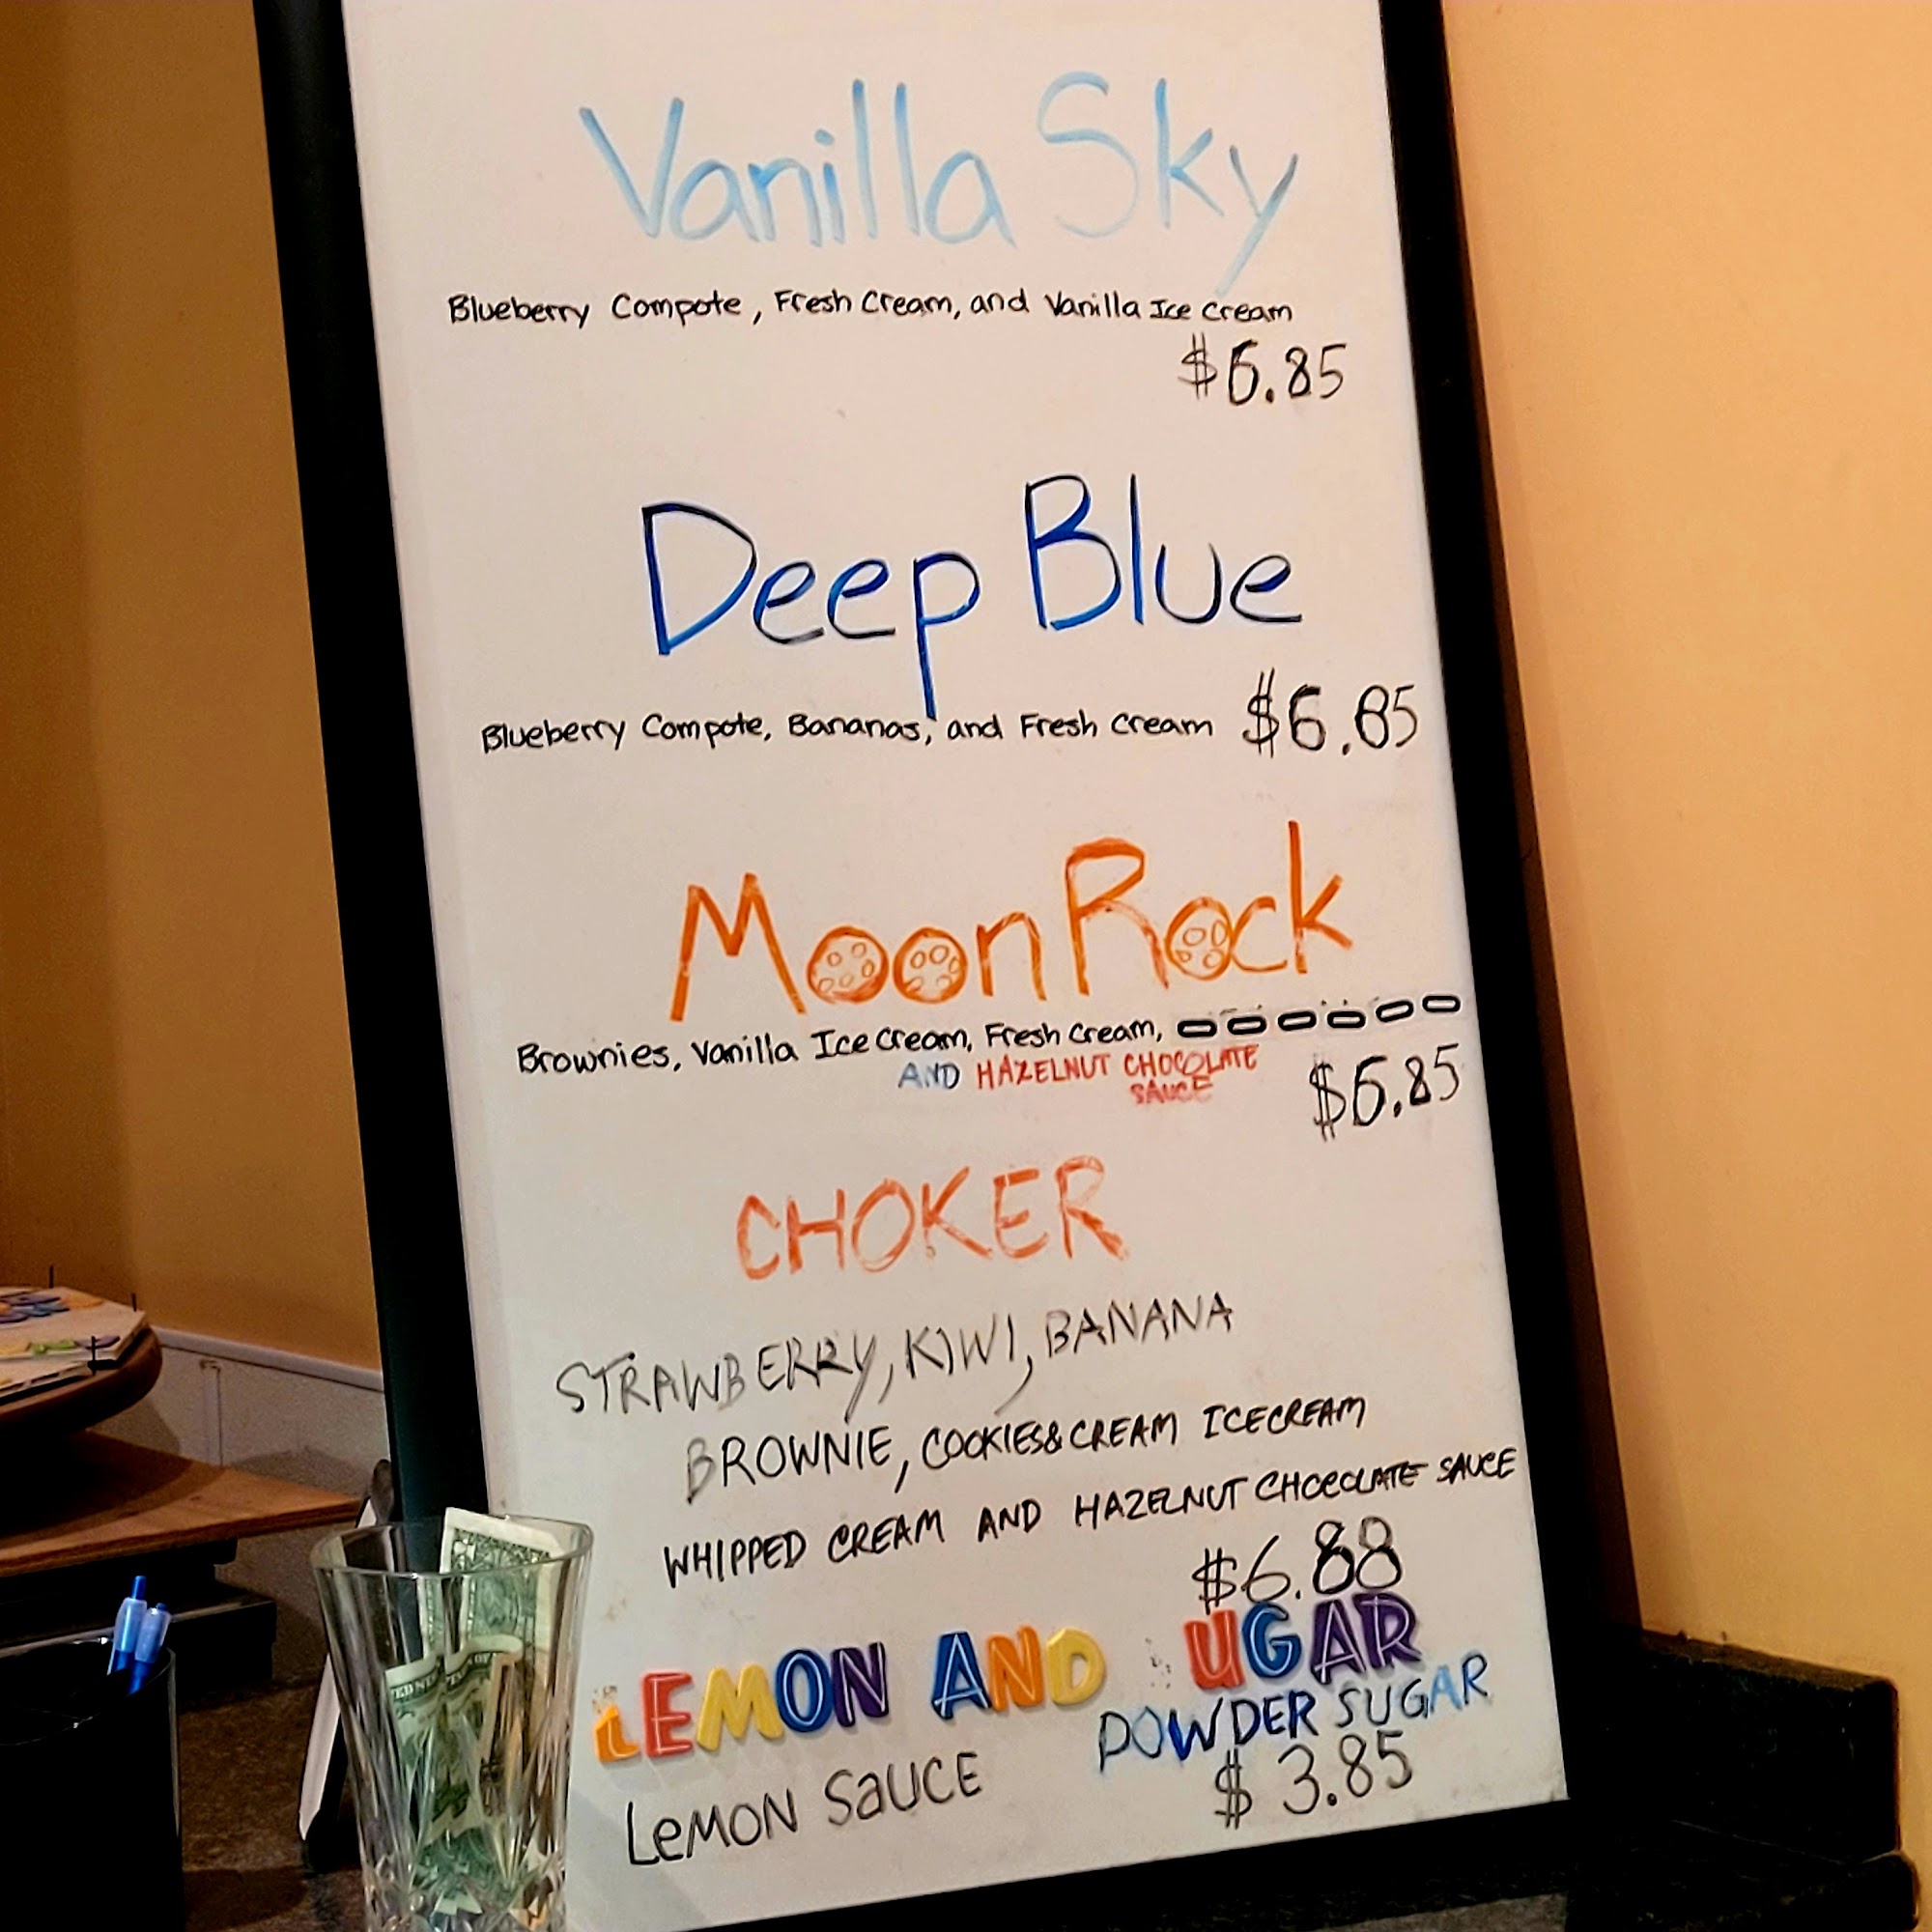 Vanilla Sky
Blueberry Compote, Fresh Cream, and Vanilla Ice Cream
$6.85
Deep Blue
Blueberry Compote, Bananas, and Fresh Cream $6.85
Moon Rock
Brownies, Vanilla Ice Cream, Fresh Cream,
AND HAZELNUT CHOCOLATE
SAUCE
$6.85
CHOKER
STRAWBERRY, KIWI, BANANA
BROWNIE, COOKIES&CREAM ICECREAM
WHIPPED CREAM AND HAZELNUT CHOCOLATE SAUCE
$6.88
LEMON AND UGAR
POWDER SUGAR
LEMON SAUCE
$3.85